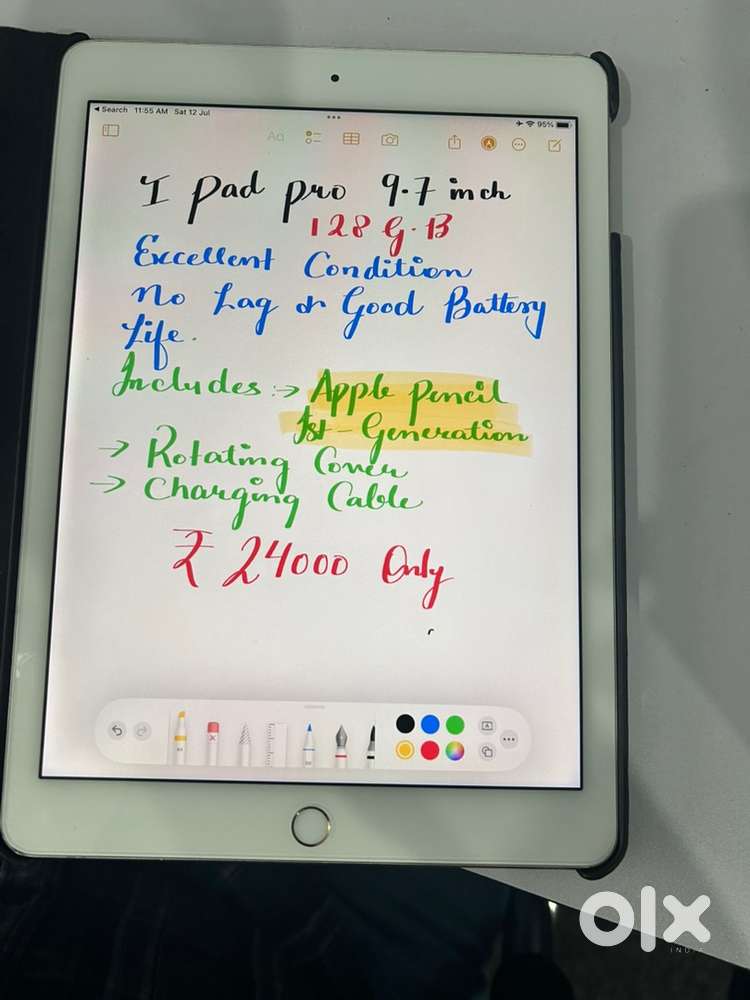 Search 11:55 AM Sat 12 Jul
95%
Aa
I Pad pro 9.7 inch
128 G.B
Excellent Condition
No Lag or Good Battery
Life.
Includes :→ Apple Pencil
1st - Generation
→ Rotating Cover
→ Charging Cable
₹ 24000 Only
olx
INDIA